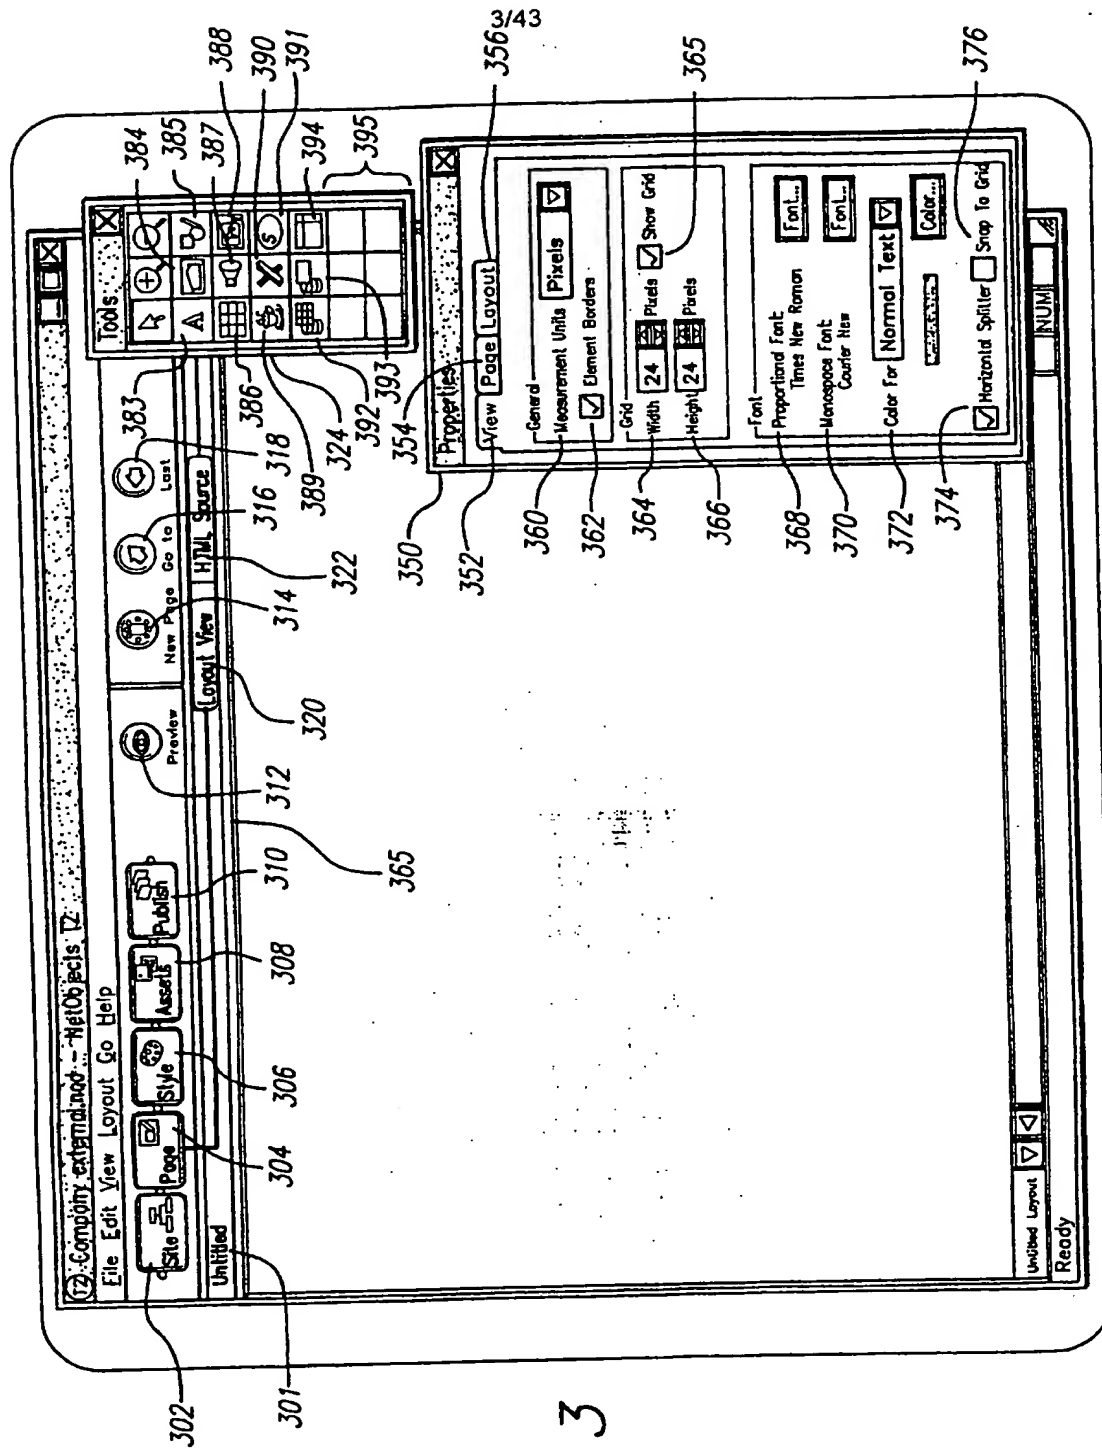 3/43
T2 Company external.nod - NetObjects T2
File Edit View Layout Go Help
Site
Page
Style
Assets
Publish
Preview
New Page
Go to
Last
Untitled
Layout View
HTML Source
Tools
A
S
Properties
View
Page
Layout
General
Measurement Units
Pixels
Element Borders
Grid
Width
24
Pixels
Show Grid
Height
24
Pixels
Font
Proportional Font:
Times New Roman
Font...
Monospace Font:
Courier New
Font...
Color For
Normal Text
Color...
Horizontal Splitter
Snap To Grid
Untitled Layout
Ready
NUM
302
304
306
308
310
312
314
316
318
383
384
385
387
388
390
391
394
395
301
365
320
322
386
389
324
392
393
350
352
354
356
360
362
364
365
366
368
370
372
374
376
3